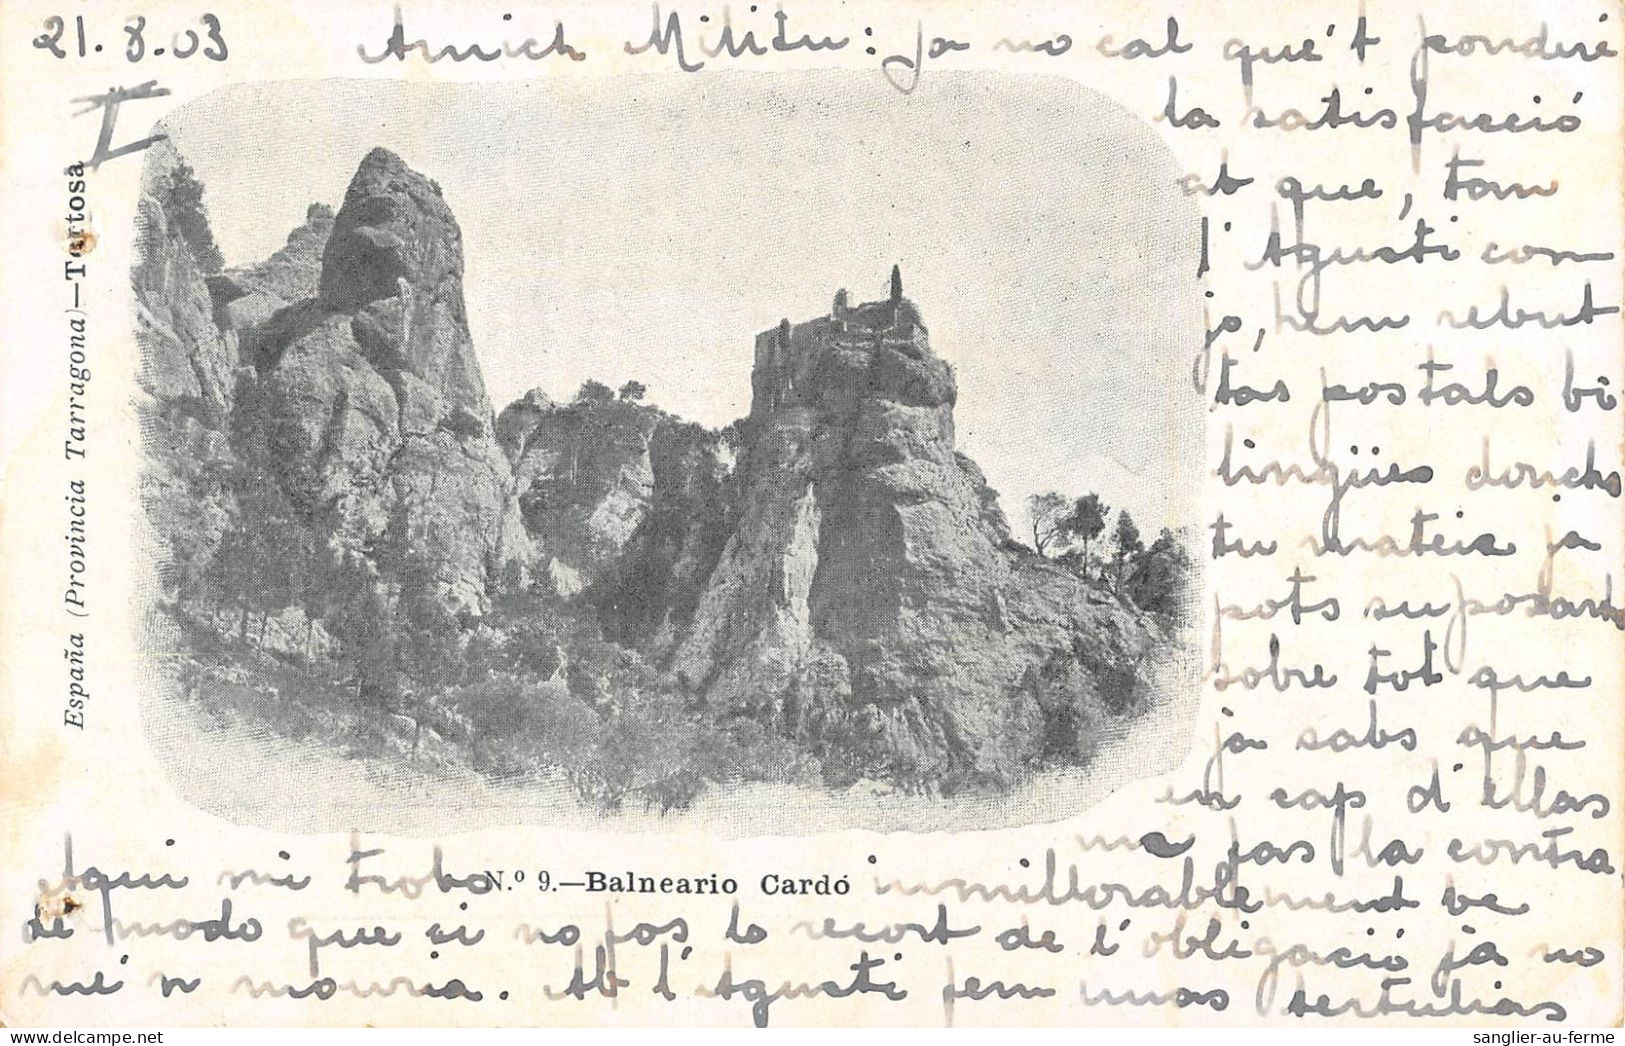 21.8.03
I
Amich Militu: ja no cal que't ponderi
la satisfacció
ab que, tan
l'Agusti com
jo, hem rebut
tas postals bi-
lingües donchs
tu mateix ja
pots suposarho
sobre tot que
ja sabs que
en cap d'ellas
me fas la contra
España (Provincia Tarragona)—Tortosa
N.º 9.—Balneario Cardó
Aqui me trobo inmillorablement be
de modo que si no fos lo recort de l'obligació ja no
me'n mouria. Ab l'Agusti fem unas tertulias
sanglier-au-ferme